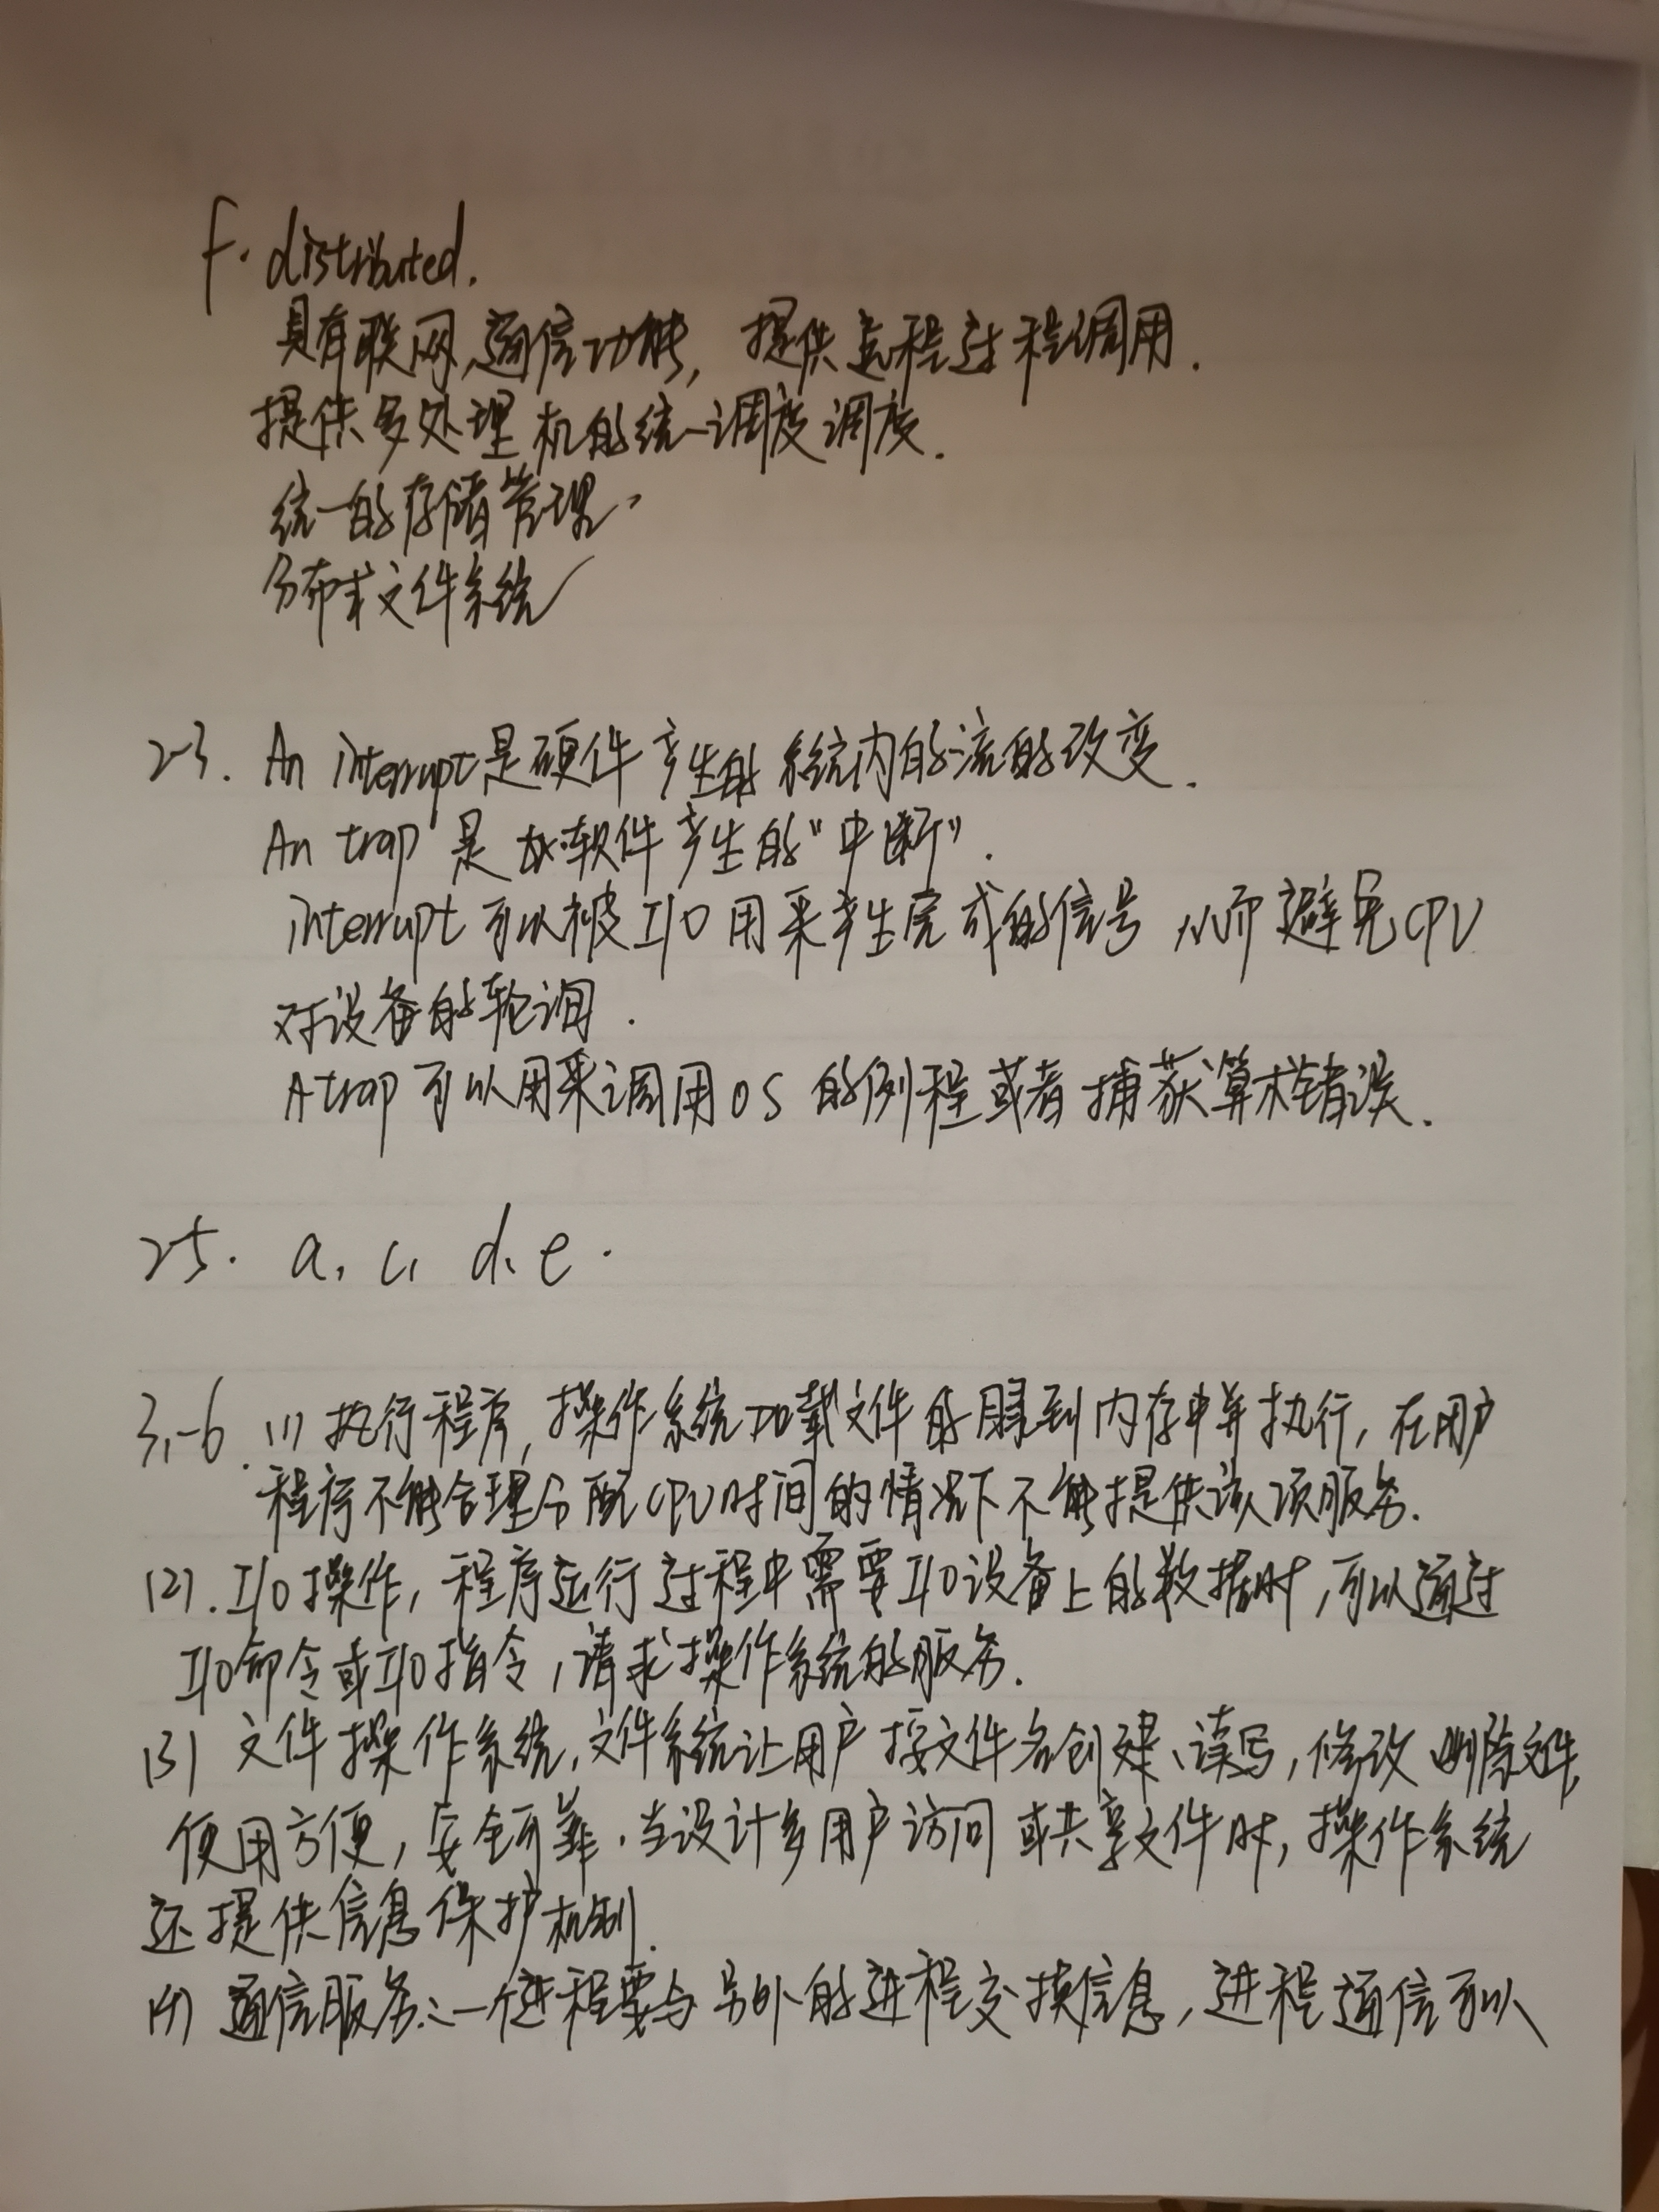 f. distributed.
具有联网、通信功能, 提供远程过程调用.
提供多处理机的统一调度调度.
统一的存储管理.
分布求文件系统
2-3. An interrupt是硬件产生的系统内的流的改变.
An trap 是 软件产生的"中断".
interrupt 可以被 I/O 用来产生完成的信号 从而避免CPU
对设备的轮询.
A trap 可以用来调用OS 的例程或者捕获算术错误.
2-5. a, c, d, e.
3,-6. (1) 执行程序, 操作系统加载文件的 到内存中并执行, 在用户
程序不能合理分配CPU时间的情况下不能提供该项服务.
(2). I/O 操作, 程序运行过程中需要I/O设备上的数据时, 可以通过
I/O命令或I/O指令, 请求操作系统的服务.
(3) 文件操作系统, 文件系统让用户按文件名创建、读写, 修改、删除文件,
使用方便, 安全可靠. 当设计多用户访问或共享文件时, 操作系统
还提供信息保护机制.
(4) 通信服务: 一个进程要与另外的进程交换信息, 进程通信可以